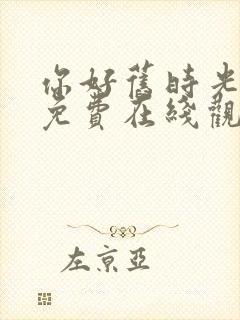 你好舊時光
免費在綫觀
左京亞